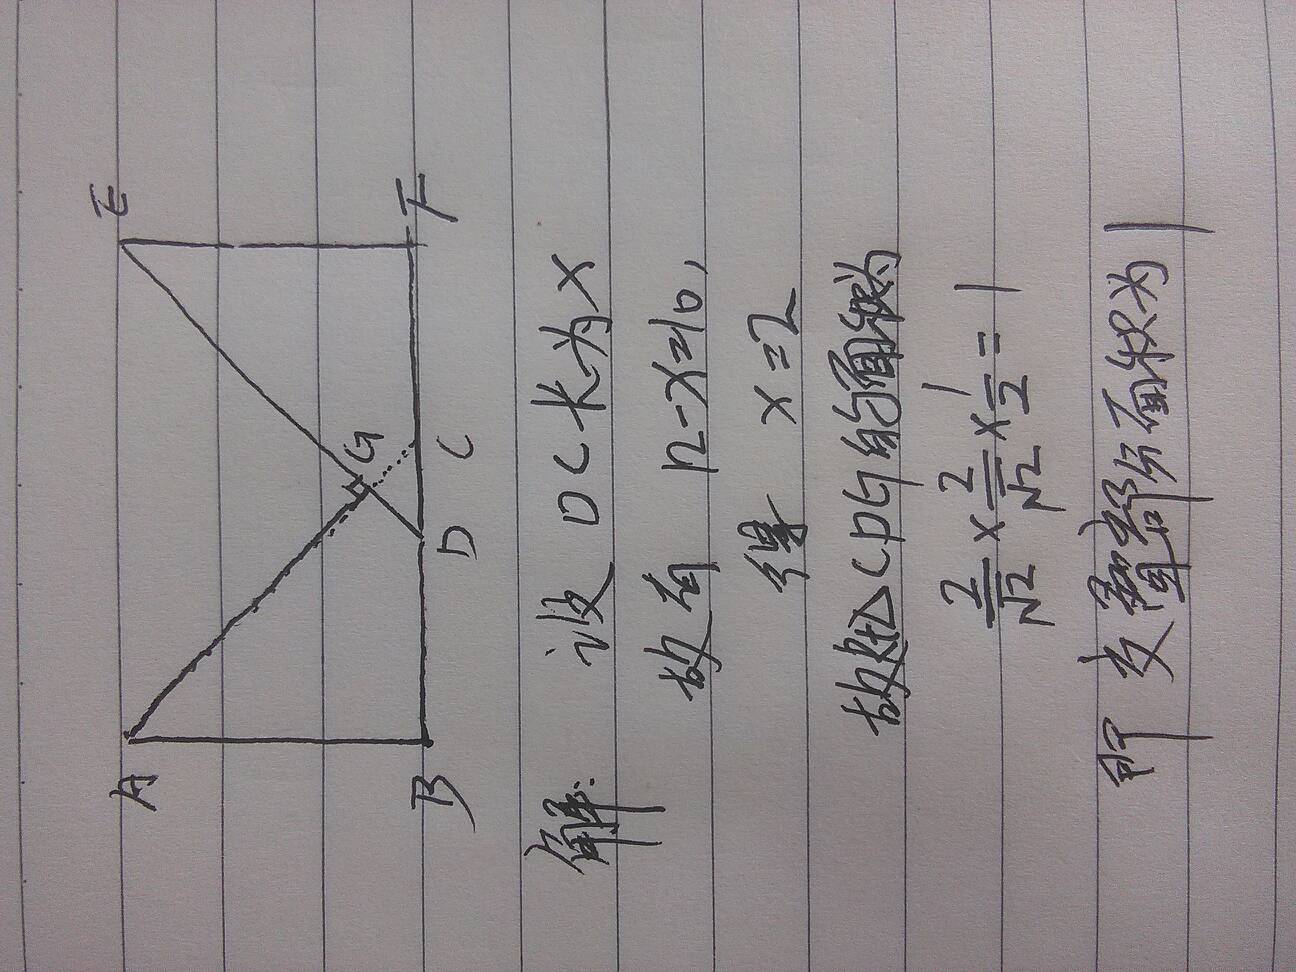 A E
G
B D C F
解: 设DC长为x
故有 12-x=10,
得 x=2
故知△CDG的面积为
2/√2 × 2/√2 × 1/2 = 1
即 交叠部分面积为1